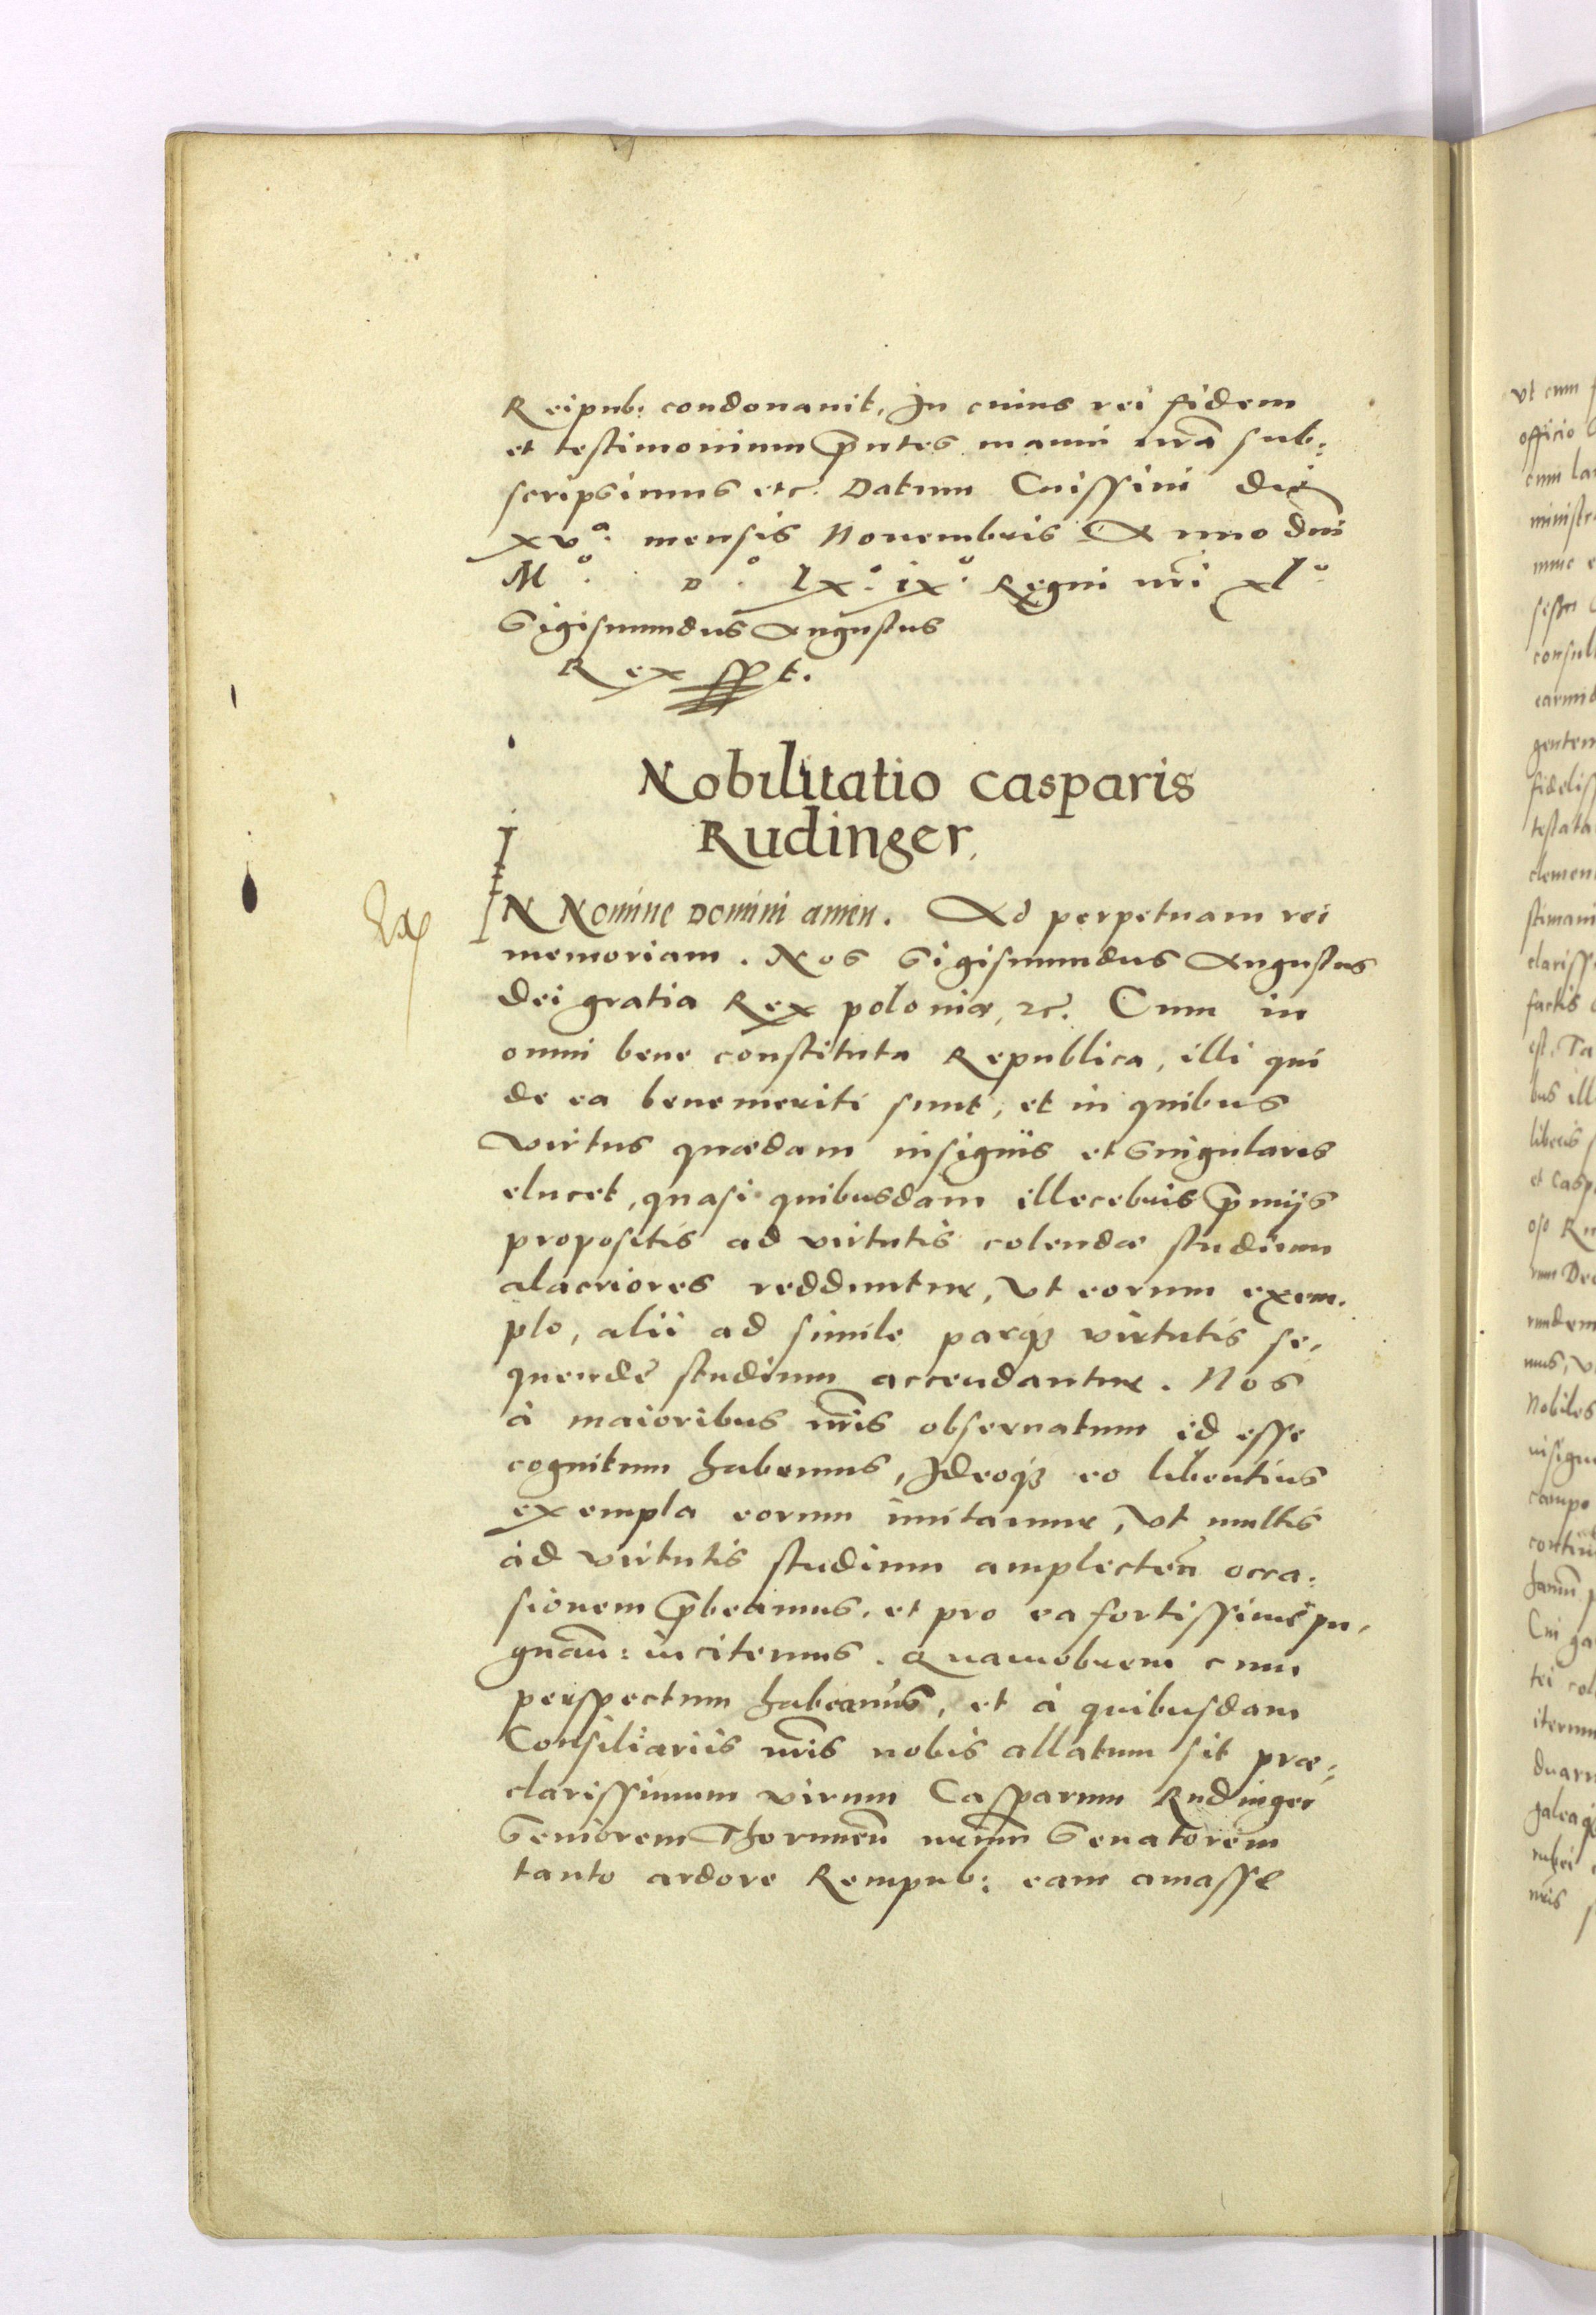 Reipub: condonauit, In cuius rei fidem
et testimonium p̃ntes manu nr̃a sub:
scripsimus etc. Datum Cnissini die
xvᵃ. mensis Nouembris Anno dni
Mº. Dº. lxº. ixº. Regni nr̃i xlº
Sigismundus Augustus
Rex sspt.
Nobilitatio Casparis
Rudinger,
IN Nomine Domini amen. Ad perpetuam rei
memoriam. Nos Sigismundus Augustus
Dei gratia Rex poloniæ, etc. Cum in
omni bene constituta Republica, illi qui
de ea benemeriti sunt, et in quibus
virtus quædam insignis et Singularis
elucet, quasi quibusdam illecebris p̃mijs
propositis ad virtutis colendæ studium
alacriores redduntur, vt eorum exem.
plo, alii ad simile parq₃ virtutis se,
quendę studium accendantur. Nos
à maioribus nr̃is obseruatum id esse
cognitum habemus, Ideoq₃ eo libentius
exempla eorum imitamur, vt multis
ad virtutis studium amplecteñ occa:
sionem p̃beamus, et pro ea fortissime pu,
gnañ: incitemus. Quamobrem cum
perspectum habeamus, et à quibusdam
Consiliariis nr̃is nobis allatum sit præ:
clarissimum virum Casparum Rudinger
Seniorem Thorunẽn nr̃um Senatorem
tanto ardore Rempub: eam amasse
vt cum
officio
cum
ministr
nunc
consul
gentem
fidelis
testata
clemen
clariss
factis
est. Ta
bus ill
liberis
et Casp
mus, v
Nobiles
campo
Cui ga
iterum
duar
galeaq₃
nr̃is